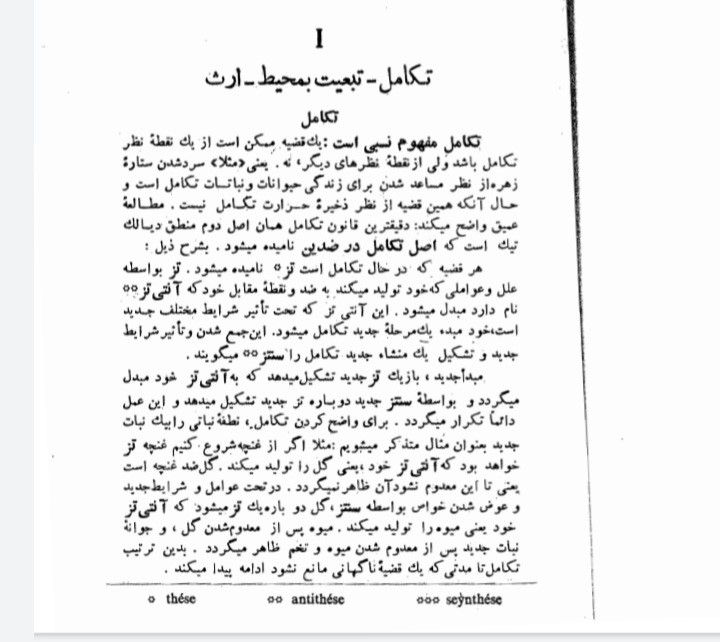 I
تکامل - تبعیت بمحیط - ارث
تکامل
تکامل مفهوم نسبی است : یك قضیه ممکن است از یك نقطهٔ نظر
تکامل باشد ولی از نقطهٔ نظرهای دیگر، نه . یعنی «مثلا» سردشدن ستارهٔ
زهره از نظر مساعد شدن برای زندگی حیوانات و نباتات تکامل است و
حال آنکه همین قضیه از نظر ذخیرهٔ حرارت تکامل نیست . مطالعهٔ
عمیق واضح میکند: دقیقترین قانون تکامل همان اصل دوم منطق دیالك
تیك است که اصل تکامل در ضدین نامیده میشود . بشرح ذیل :
هر قضیه که در حال تکامل است تز ٥ نامیده میشود . تز بواسطه
علل و عواملی که خود تولید میکند به ضد و نقطهٔ مقابل خود که آنتی تز ٥٥
نام دارد مبدل میشود . این آنتی تز که تحت تأثیر شرایط مختلف جدید
است، خود مبدء یك مرحلهٔ جدید تکامل میشود. این جمع شدن و تأثیر شرایط
جدید و تشکیل یك منشاء جدید تکامل را سنتز ٥٥ میگویند .
مبدأجدید ، باز یك تز جدید تشکیل میدهد که به آنتی تز خود مبدل
میگردد و بواسطهٔ سنتز جدید دوباره تز جدید تشکیل میدهد و این عمل
دائماً تکرار میگردد . برای واضح کردن تکامل، نطفهٔ نباتی را بیك نبات
جدید بعنوان مثال متذکر میشویم : مثلا اگر از غنچه شروع کنیم غنچه تز
خواهد بود که آنتی تز خود ، یعنی گل را تولید میکند . گل ضد غنچه است
یعنی تا این معدوم نشود آن ظاهر نمیگردد . در تحت عوامل و شرایط جدید
و عوض شدن خواص بواسطه سنتز، گل دو باره یك تز میشود که آنتی تز
خود یعنی میوه را تولید میکند . میوه پس از معدوم شدن گل ، و جوانهٔ
نبات جدید پس از معدوم شدن میوه و تخم ظاهر میگردد . بدین ترتیب
تکامل تا مدتی که یك قضیهٔ ناگهانی مانع نشود ادامه پیدا میکند .
٥ thése ٥٥ antithése ٥٥٥ seỳnthése